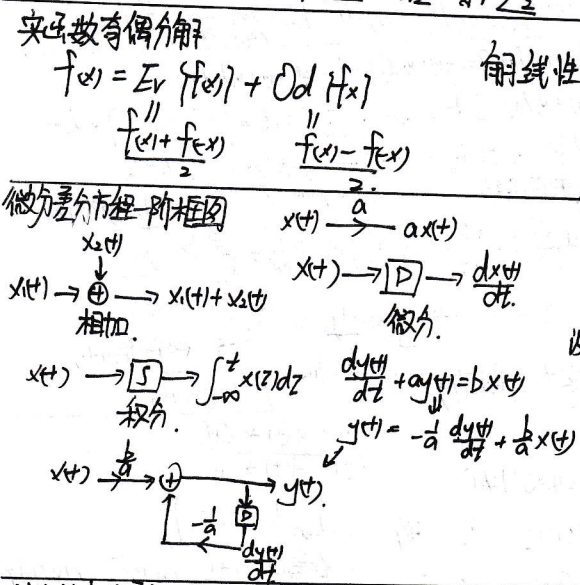 实函数奇偶分解
f(x) = Ev{f(x)} + Od{f(x)}
f(x)+f(-x)
2
f(x)-f(-x)
2.
微分差分方程一阶框图
x(t) a ax(t)
x₂(t)
x₁(t) → ⊕ → x₁(t)+x₂(t)
相加.
x(t) → D → dx(t)/dt.
微分.
x(t) → ∫ → ∫_{-∞}^{t} x(τ)dτ
积分.
dy(t)/dt + ay(t) = bx(t)
y(t) = -1/a dy(t)/dt + b/a x(t)
x(t) b/a → ⊕ → y(t).
-1/a D
dy(t)/dt